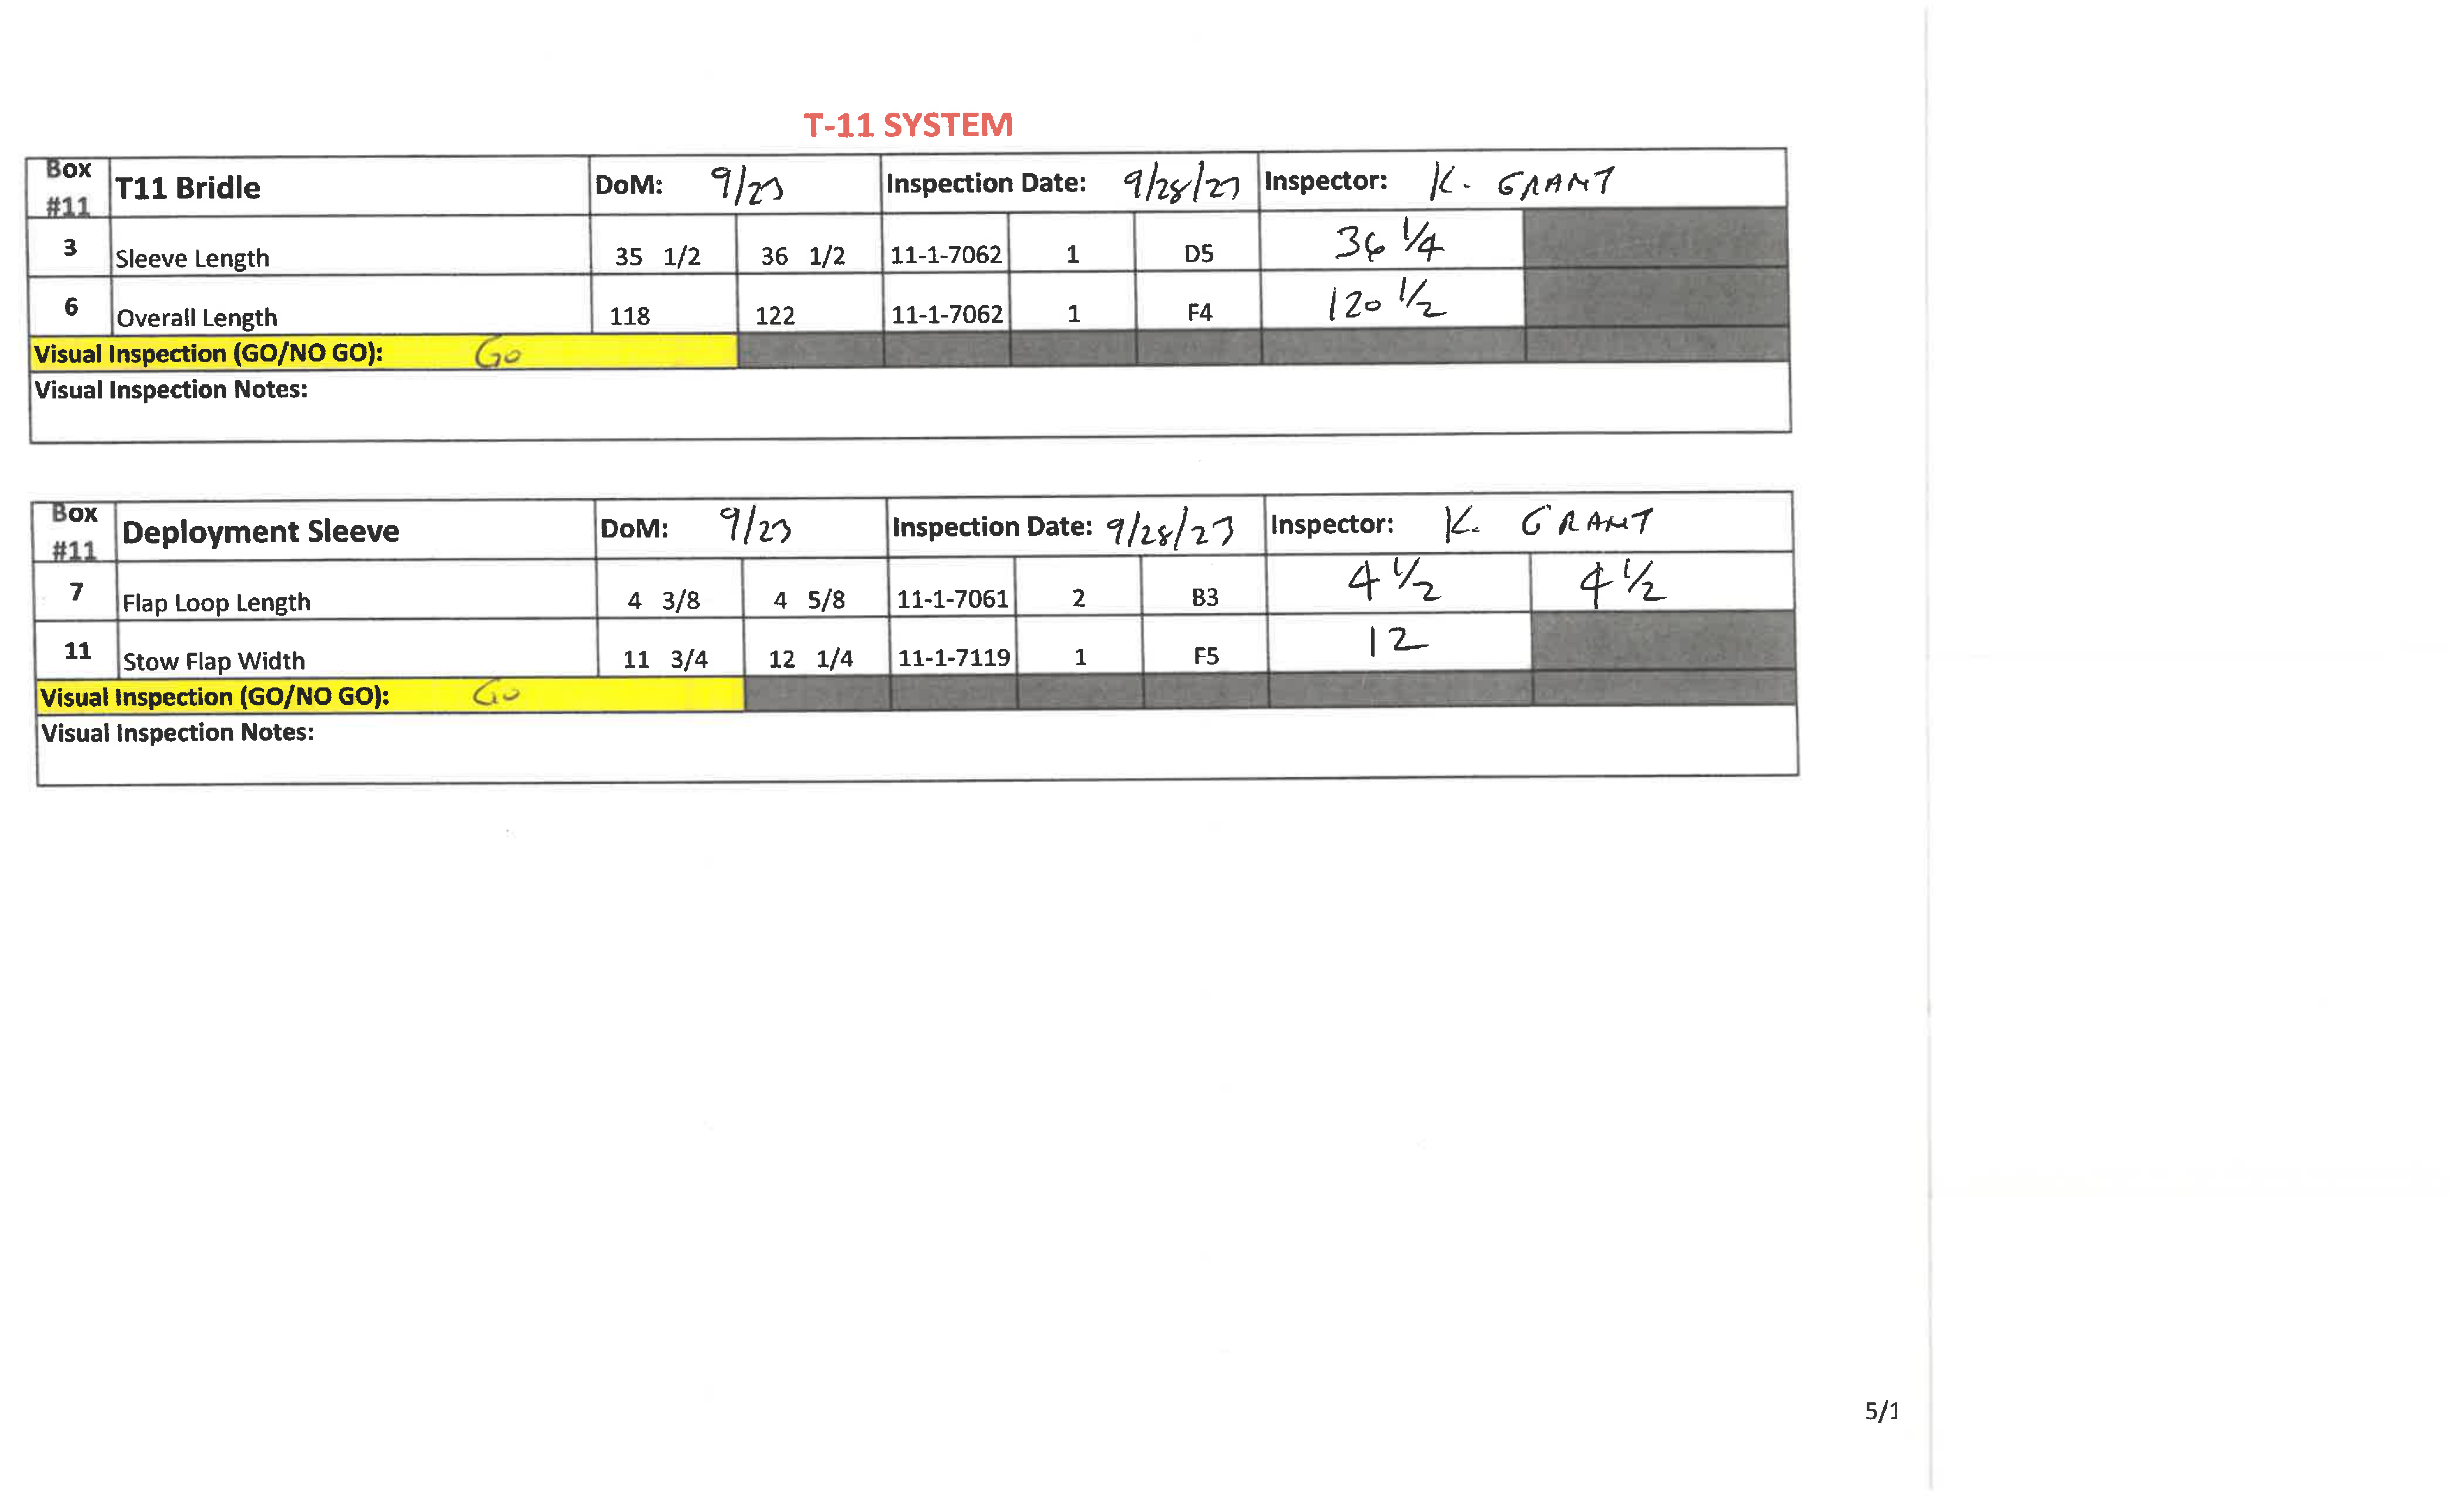 T-11 SYSTEM
Box #11 T11 Bridle DoM: 9/23 Inspection Date: 9/28/23 Inspector: K. GRANT
3 Sleeve Length 35 1/2 36 1/2 11-1-7062 1 D5 36 1/4
6 Overall Length 118 122 11-1-7062 1 F4 120 1/2
Visual Inspection (GO/NO GO): Go
Visual Inspection Notes:
Box #11 Deployment Sleeve DoM: 9/23 Inspection Date: 9/28/23 Inspector: K. GRANT
7 Flap Loop Length 4 3/8 4 5/8 11-1-7061 2 B3 4 1/2 4 1/2
11 Stow Flap Width 11 3/4 12 1/4 11-1-7119 1 F5 12
Visual Inspection (GO/NO GO): Go
Visual Inspection Notes:
5/1